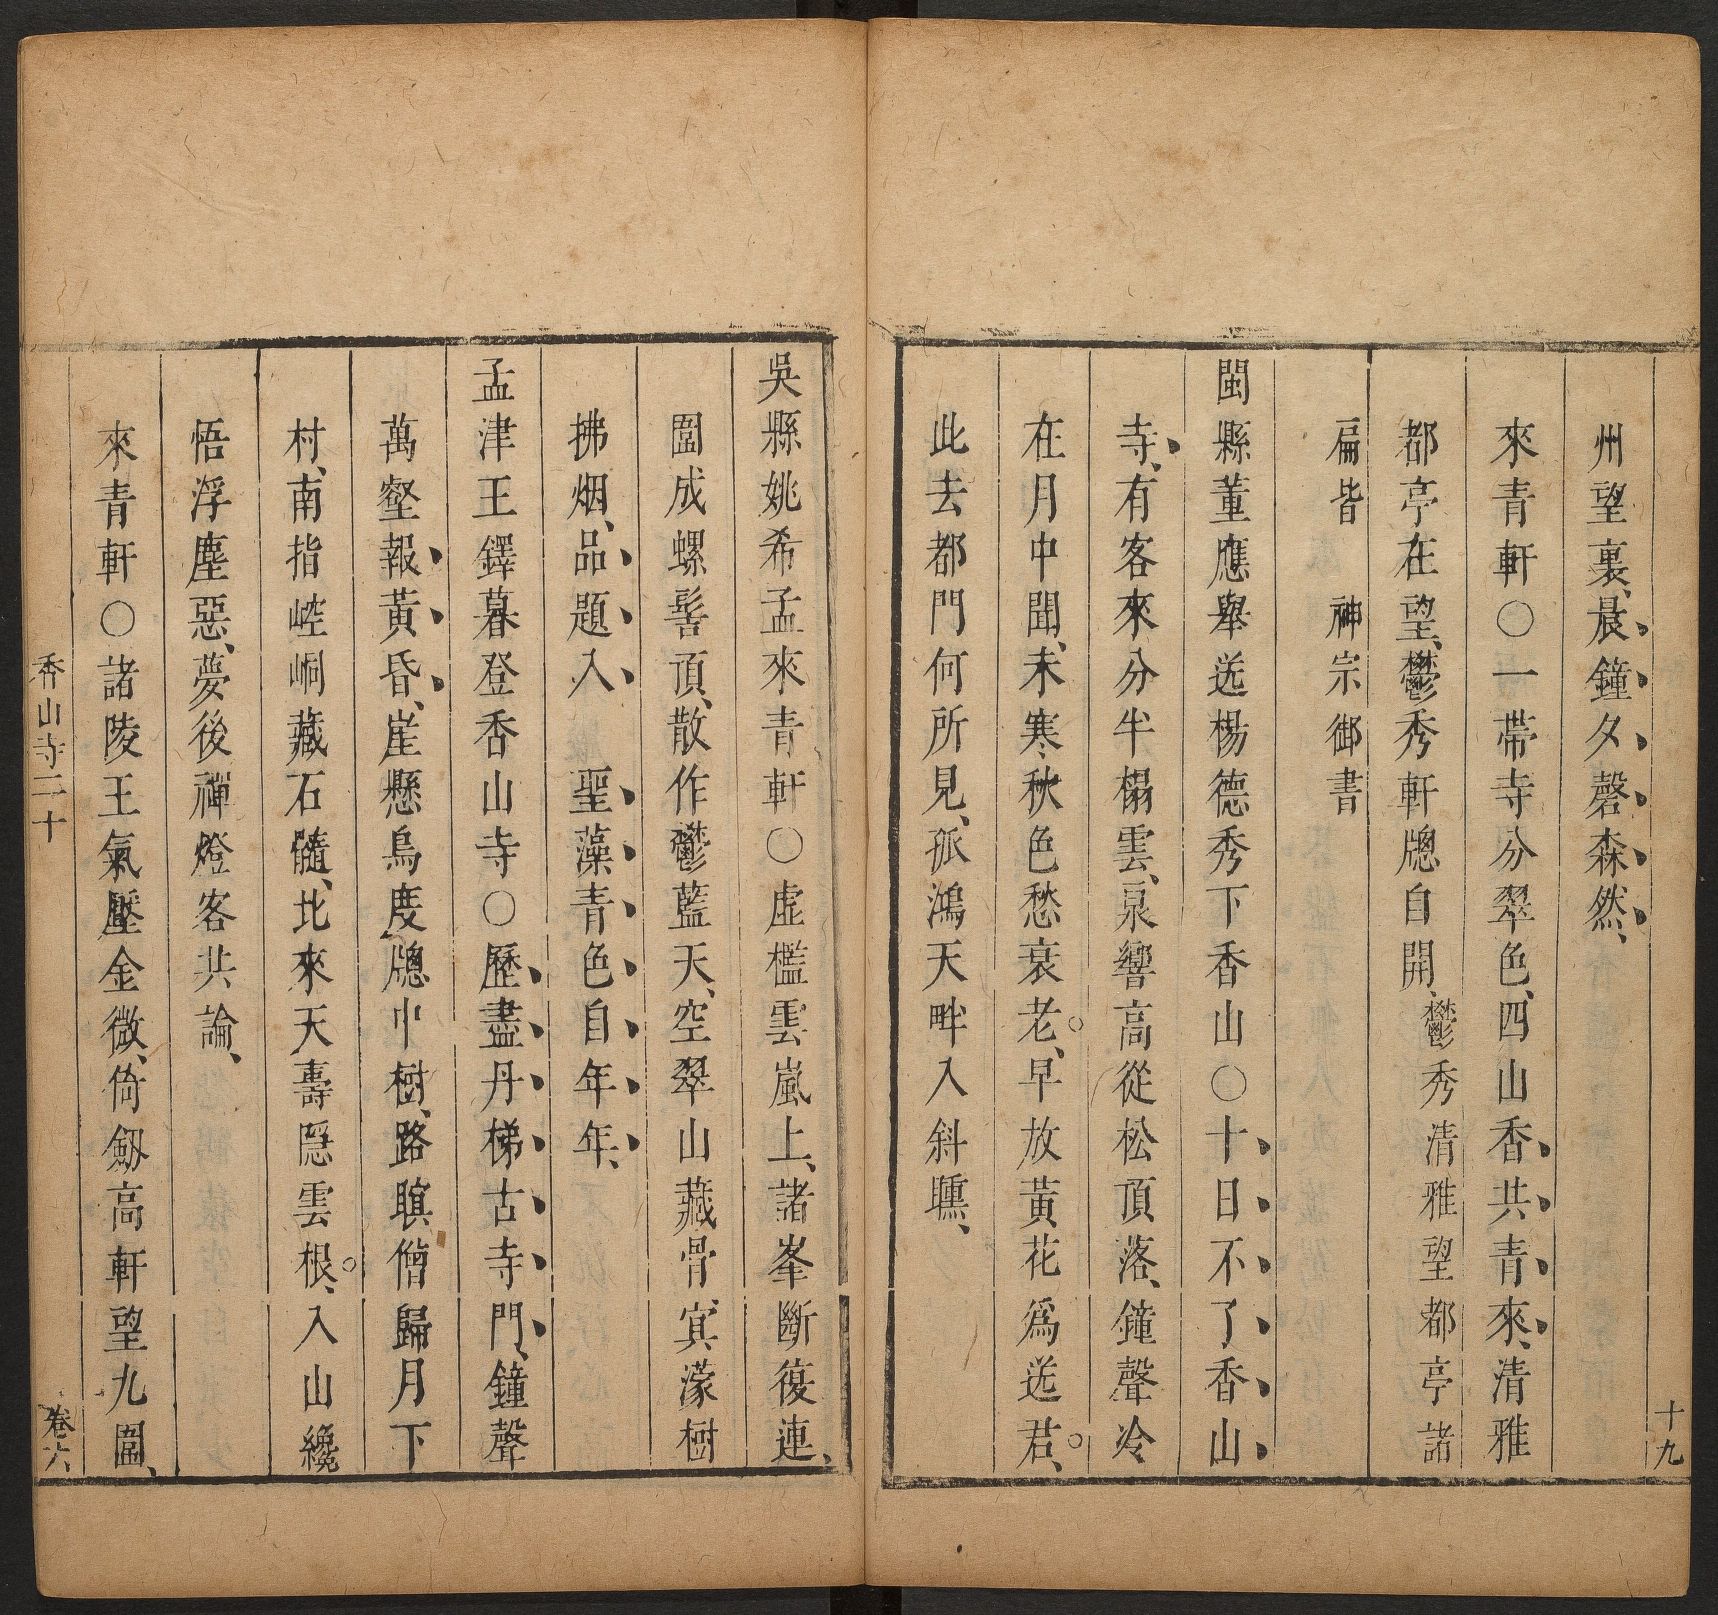 州望裏、晨鐘夕磬森然、
來青軒○一帶寺分翠色、四山香共青來、清雅
都亭在望、鬱秀軒牕自開、鬱秀清雅望都亭諸
扁皆　神宗御書
閩縣董應舉送楊德秀下香山○十日不了香山
寺、有客來分半榻雲、泉響高從松頂落、鐘聲冷
在月中聞、未寒秋色愁衰老、早放黃花爲送君、
此去都門何所見、孤鴻天畔入斜曛、
十九
吳縣姚希孟來青軒○虛檻雲嵐上、諸峯斷復連、
圍成螺髻頂、散作鬱藍天、空翠山藏骨、寘濛樹
拂烟、品題入　聖藻青色自年年、
孟津王鐸暮登香山寺○歷盡丹梯古寺門、鐘聲
萬壑報黃昏、崖懸鳥度牕中樹、路暝僧歸月下
村、南指崆峒藏石髓、北來天壽隱雲根、入山纔
悟浮塵惡、夢後禪燈客共論、
來青軒○諸陵王氣壓金微、倚劒高軒望九圍、
香山寺二十
卷六